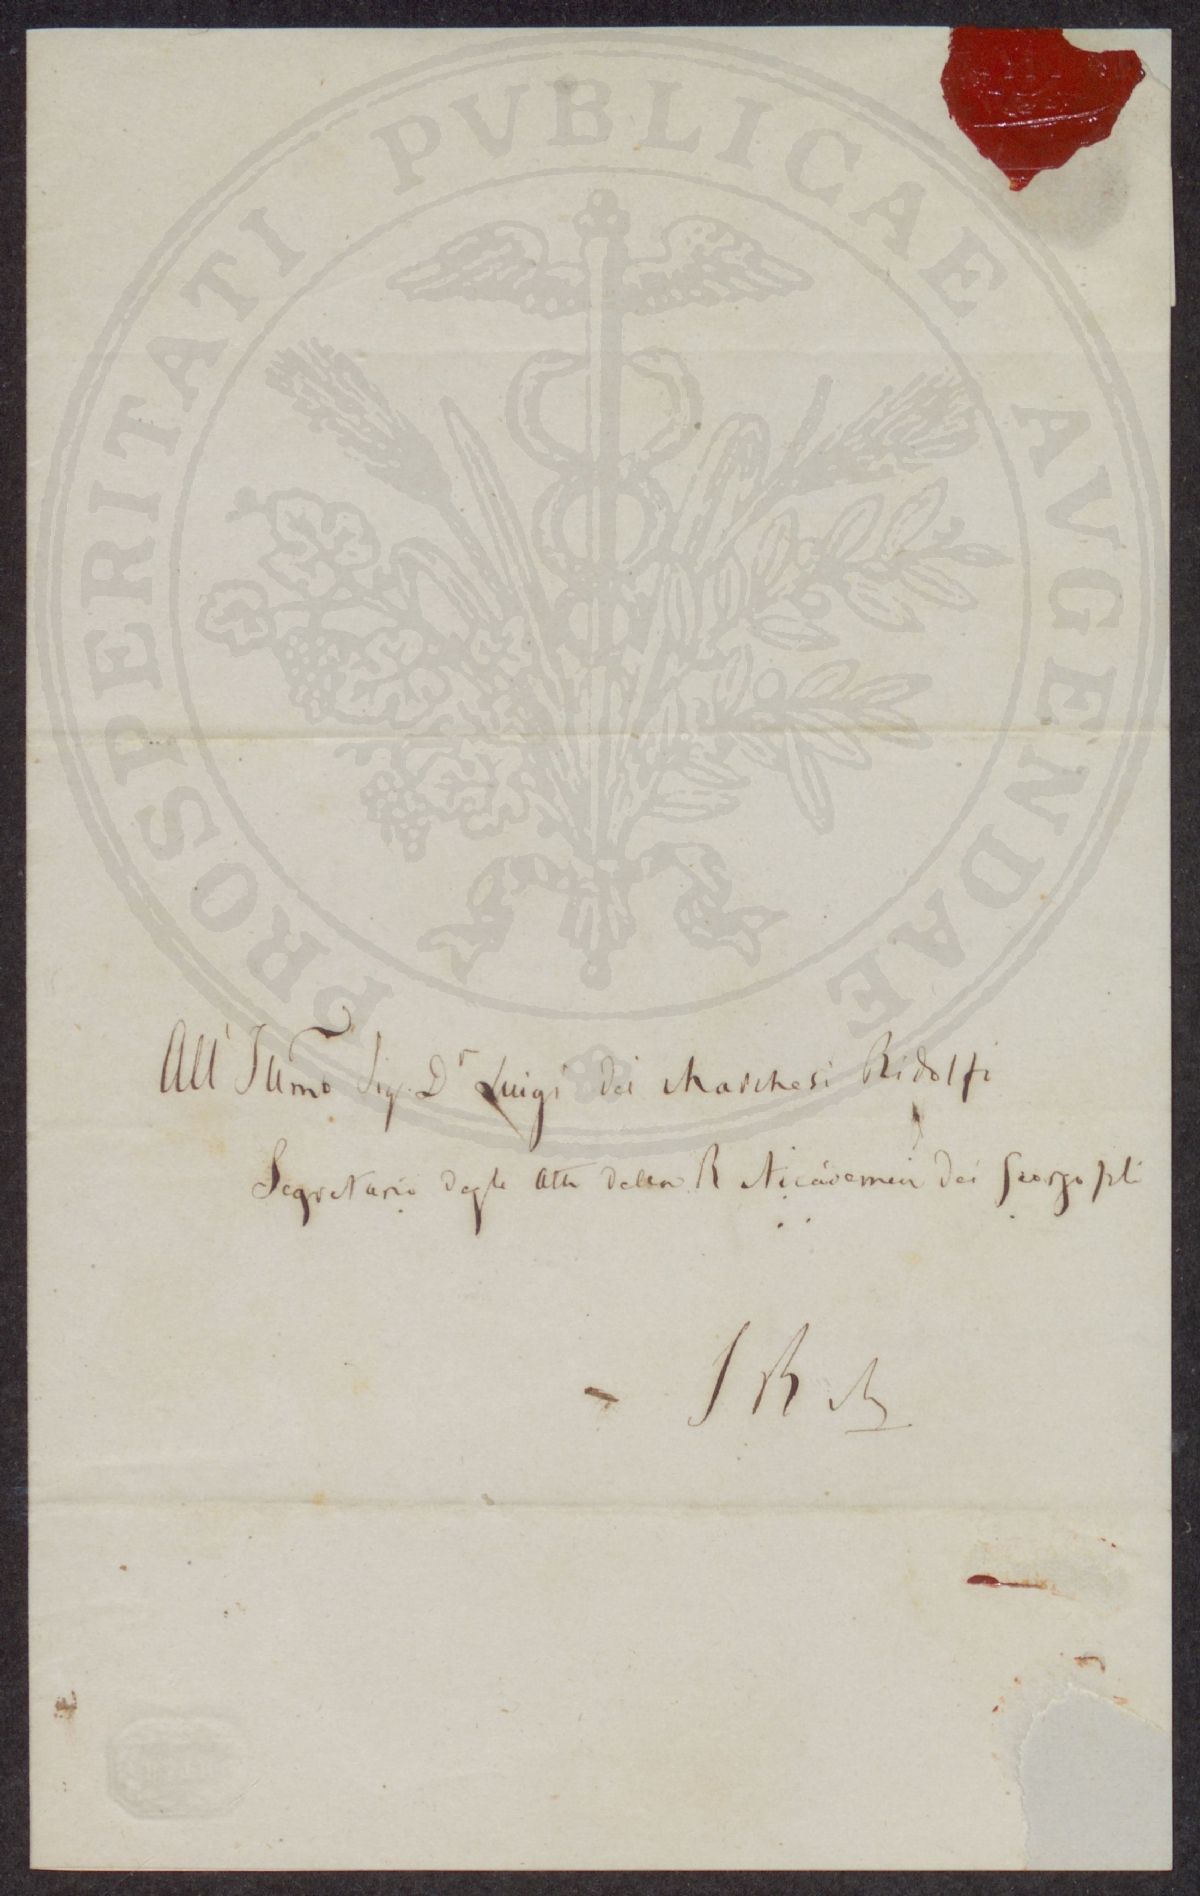 PROSPERITATI PVBLICAE AVGENDAE
All' Illmo Sig. Dr Luigi dei Marchesi Ridolfi
Segretario degli Atti della R Accademia dei Georgofili
S R M